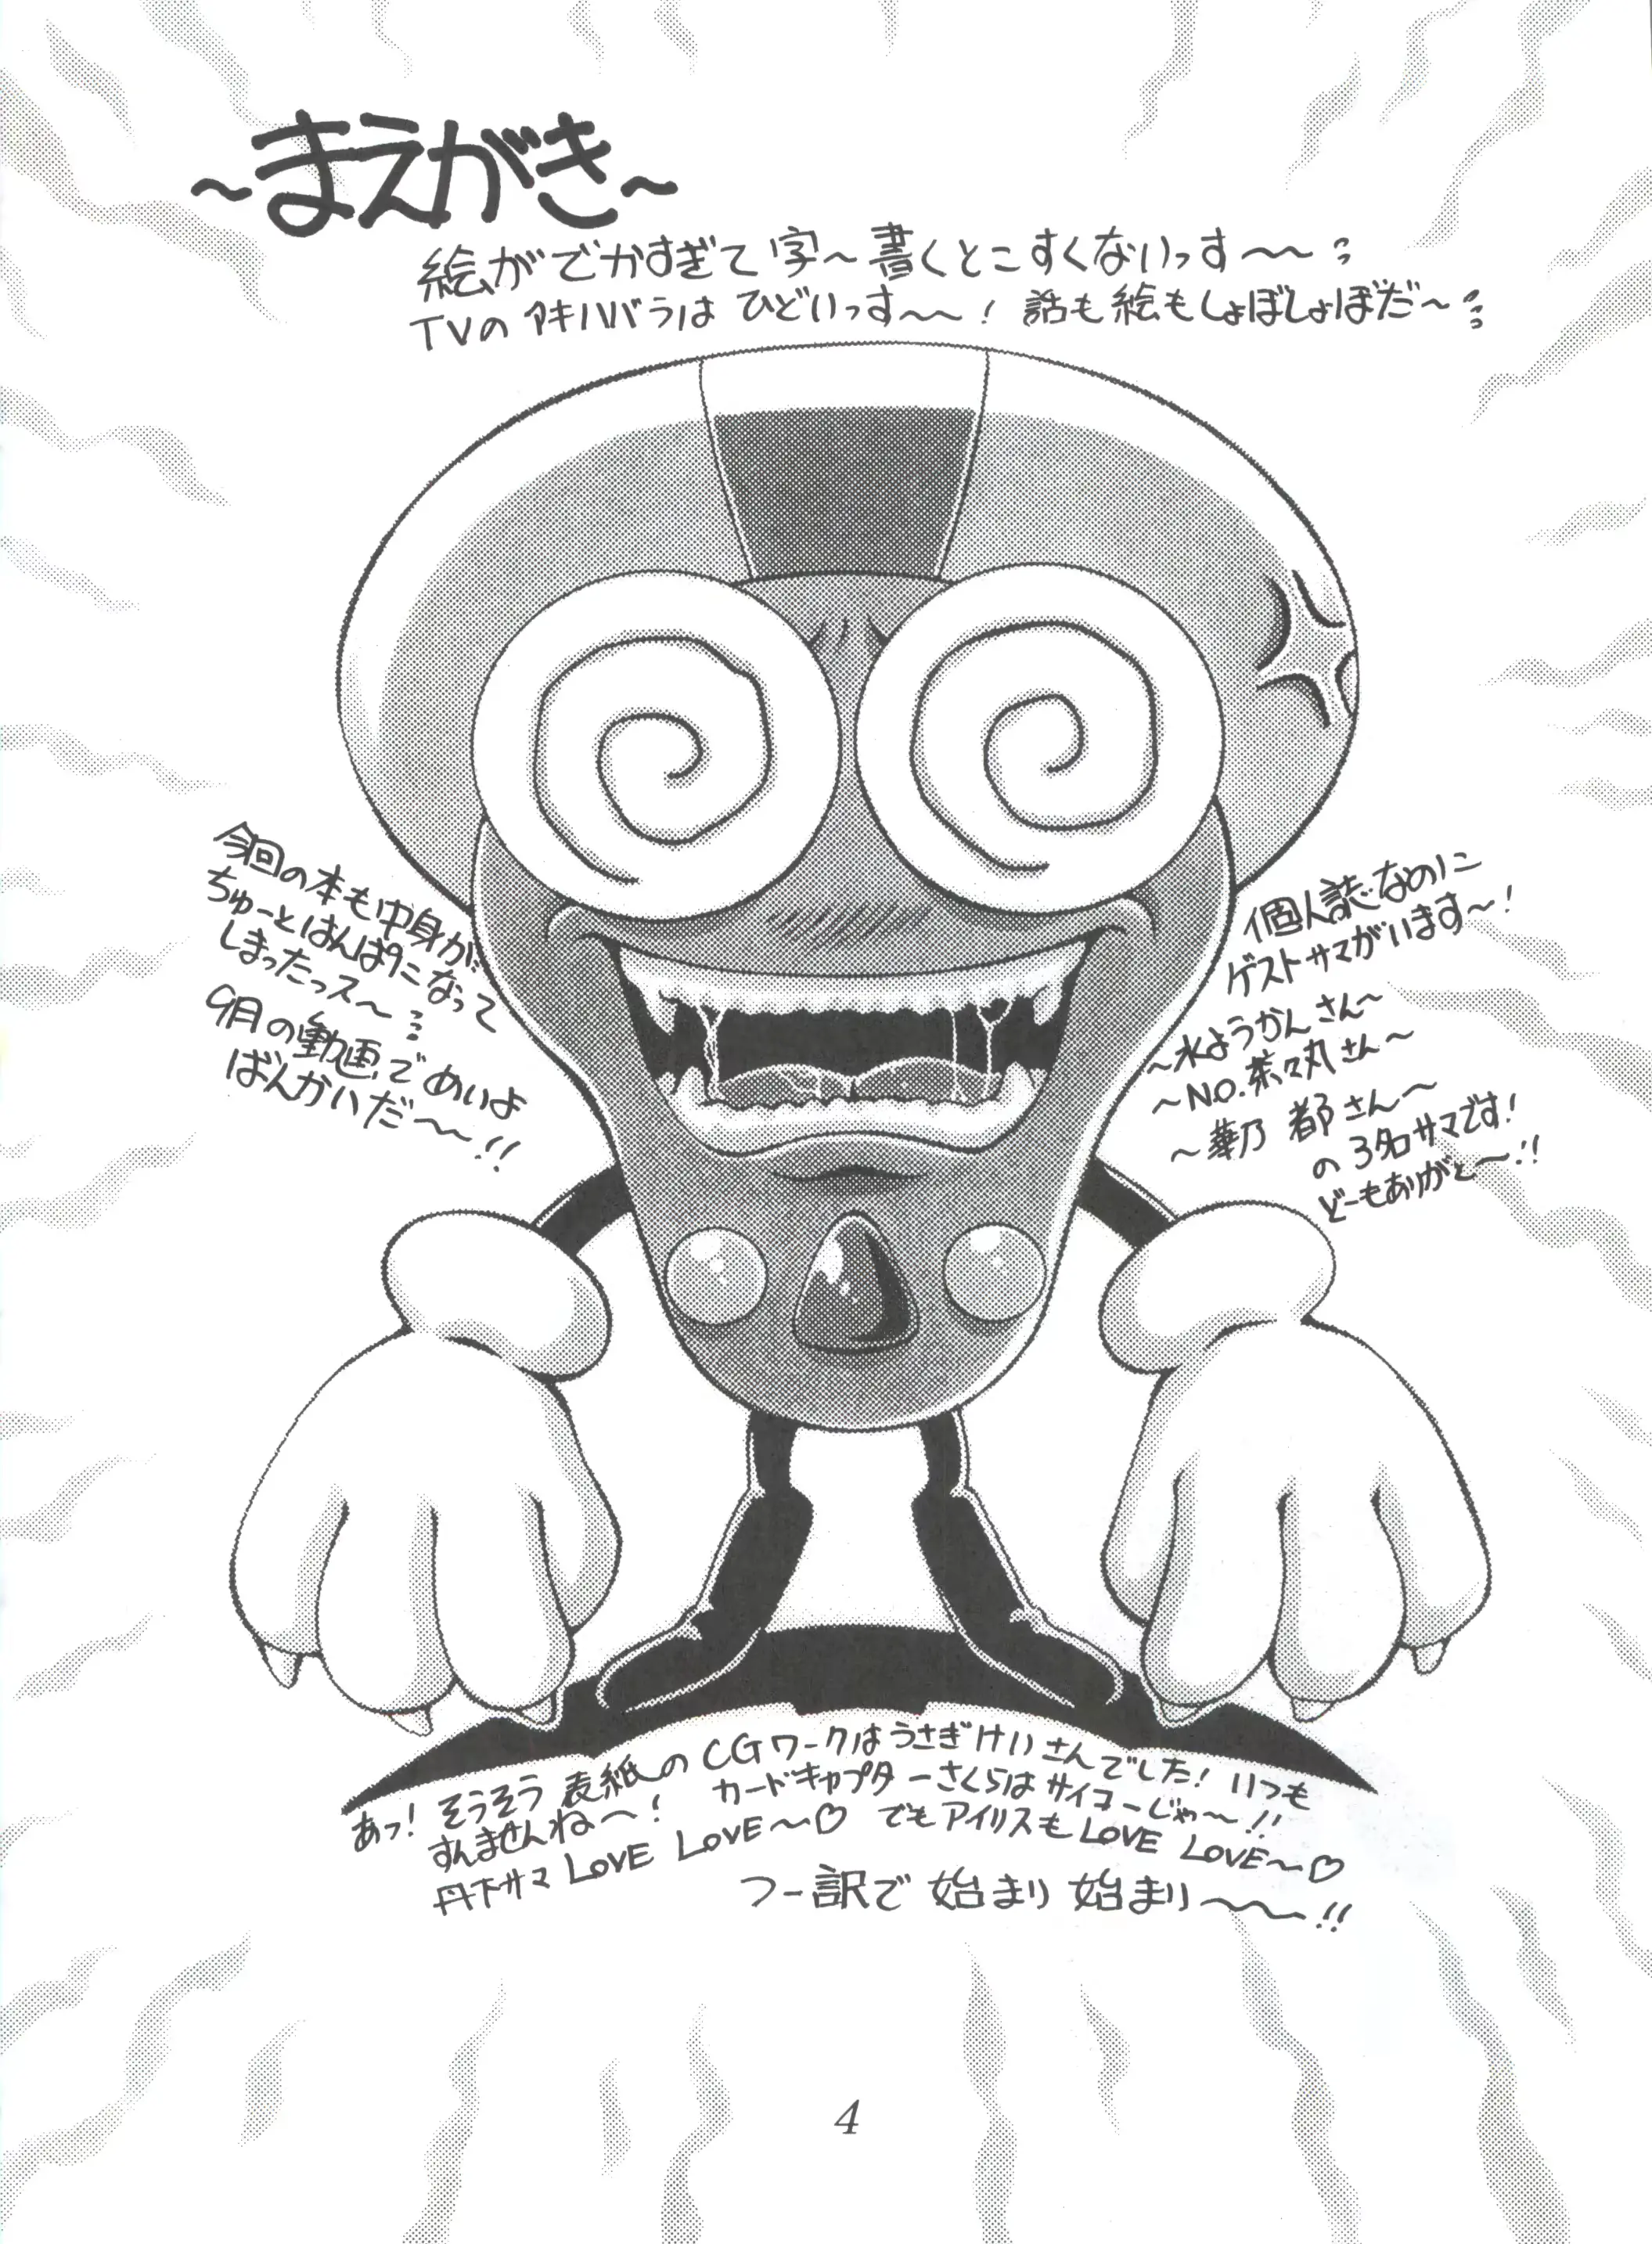 ～まえがき～
絵がでかすぎて字～書くとこすくないっす～～
TVのアキハバラはひどいっす～～！話も絵もしょぼしょぼだ～
今回の本も中身が
ちゅーとはんぱｹﾆなって
しまったっス～
9月の動画でめいよ
ばんかいだ～～!!
個人誌なのに
ゲストサマがいます～！
～水ようかんさん～
～NO.茶々丸さん～
～華乃 都さん～
の3名サマです！
どーもありがと～!!
あっ！そうそう表紙のCGワークはうさぎけいさんでした！いつも
すんませんね～！ カードキャプターさくらはサイコーじゃ～!!
丹下サマ LOVE LOVE～♡ でもアイリスもLOVE LOVE～♡
つー訳で 始まり 始まり～～!!
4